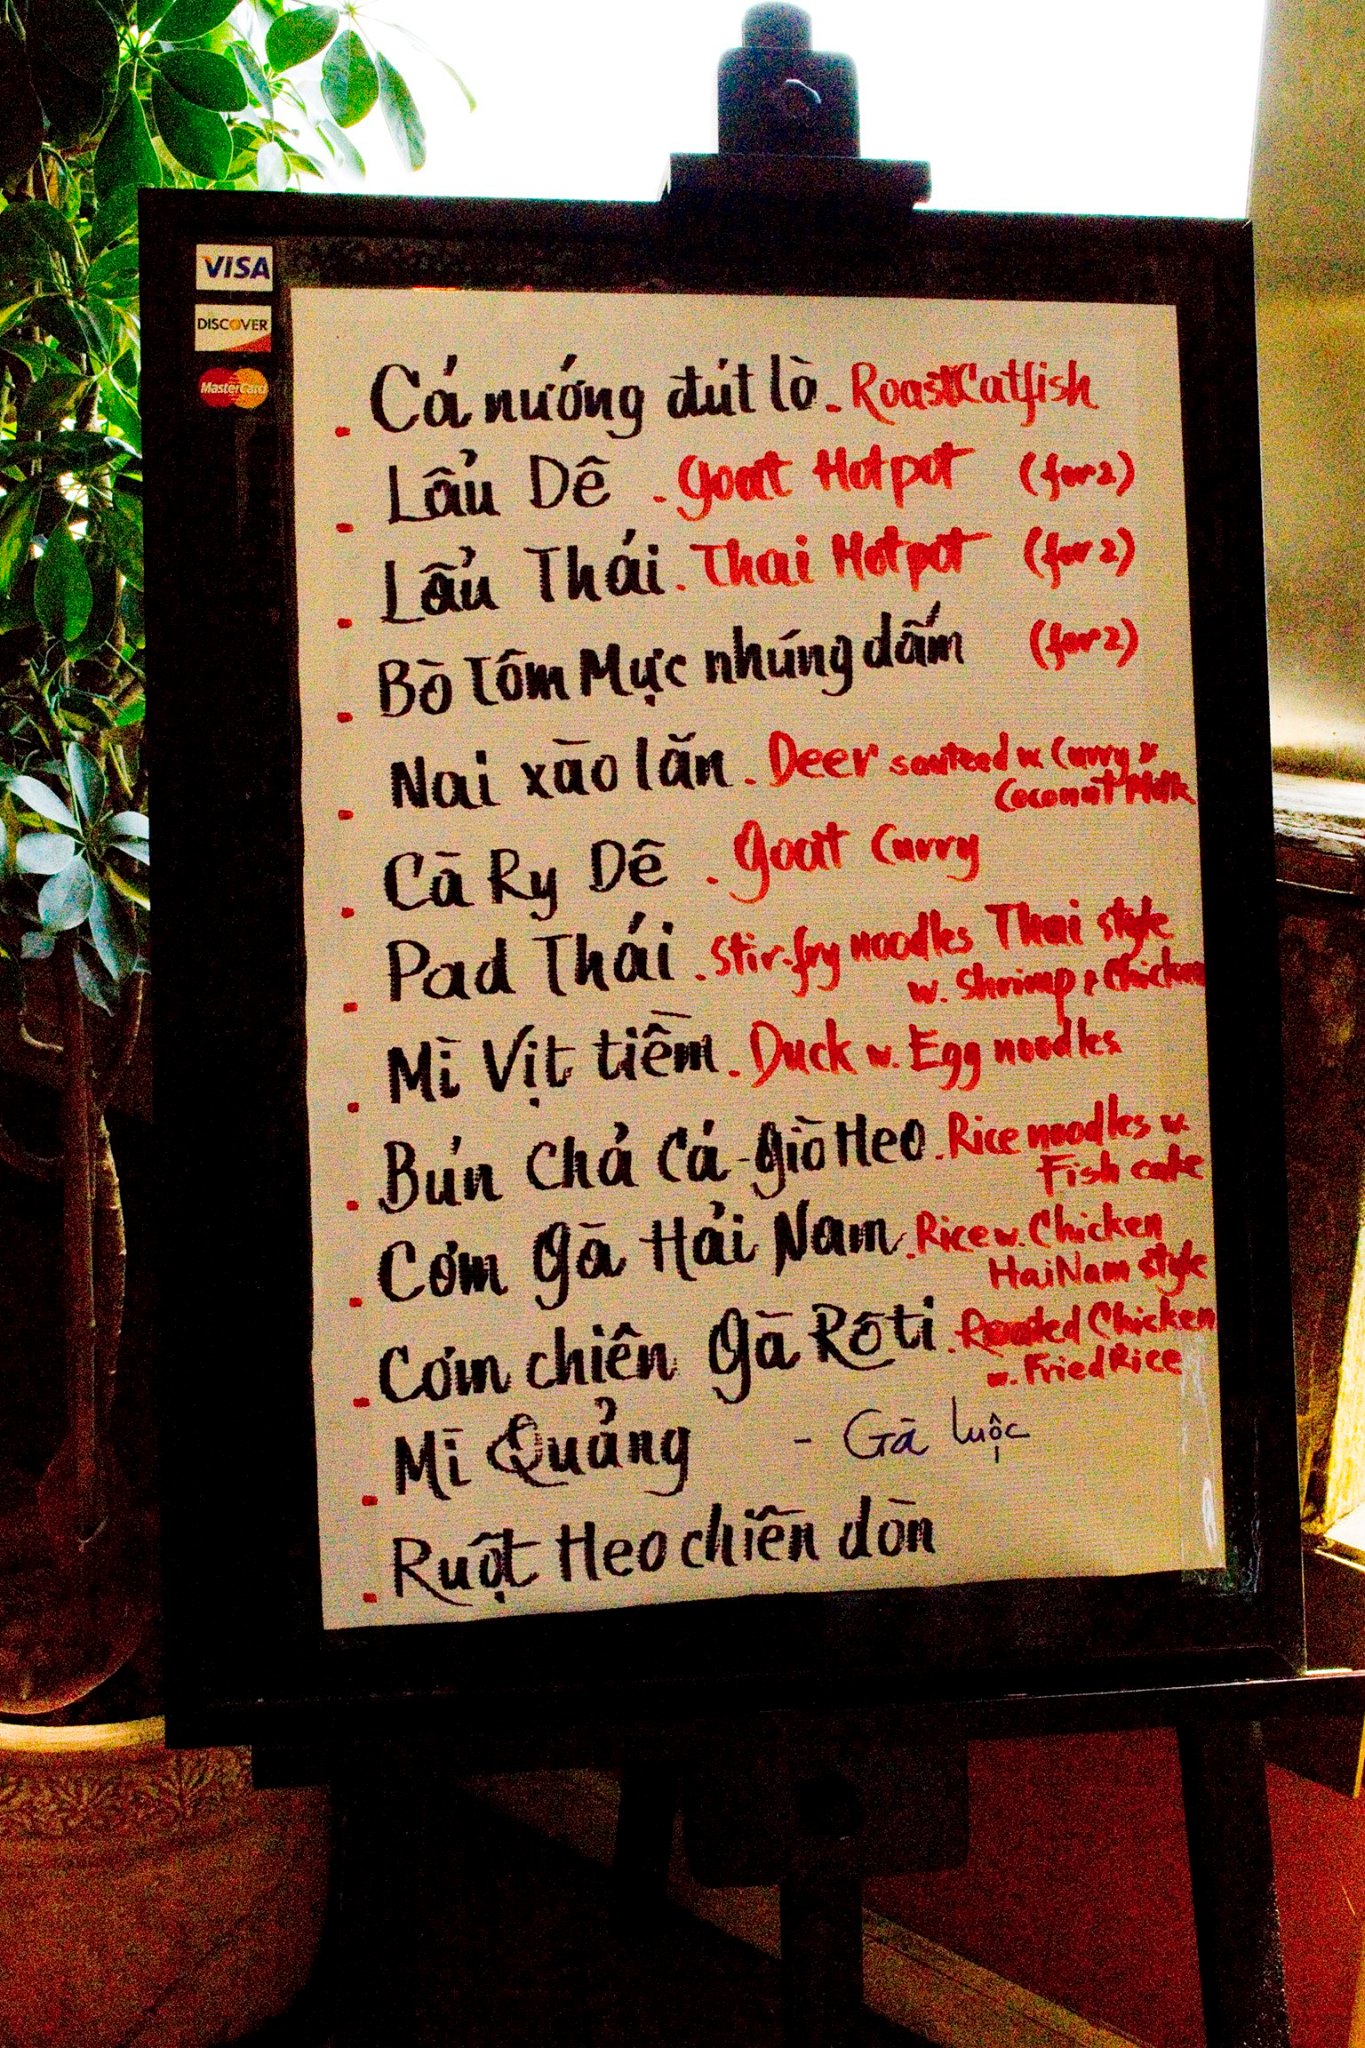 VISA
DISCOVER
MasterCard
. Cá nướng đút lò. Roast Catfish
. Lẩu Dê . Goat Hotpot (for 2)
. Lẩu Thái. Thai Hotpot (for 2)
. Bò Tôm Mực nhúng dấm (for 2)
. Nai xào lăn. Deer sauteed w. Curry &
Coconut Milk
. Cà Ry Dê . Goat Curry
. Pad Thái . Stir-fry noodles Thai style
w. Shrimp & Chicken
. Mì Vịt tiềm. Duck w. Egg noodles
. Bún Chả Cá - Giò Heo. Rice noodles w.
Fish cake
. Cơm gà Hải Nam. Rice w. Chicken
HaiNam style
. Cơm chiên gà Rôti. Roasted Chicken
w. Fried Rice
. Mì Quảng - Gà luộc
. Ruột Heo chiên dòn